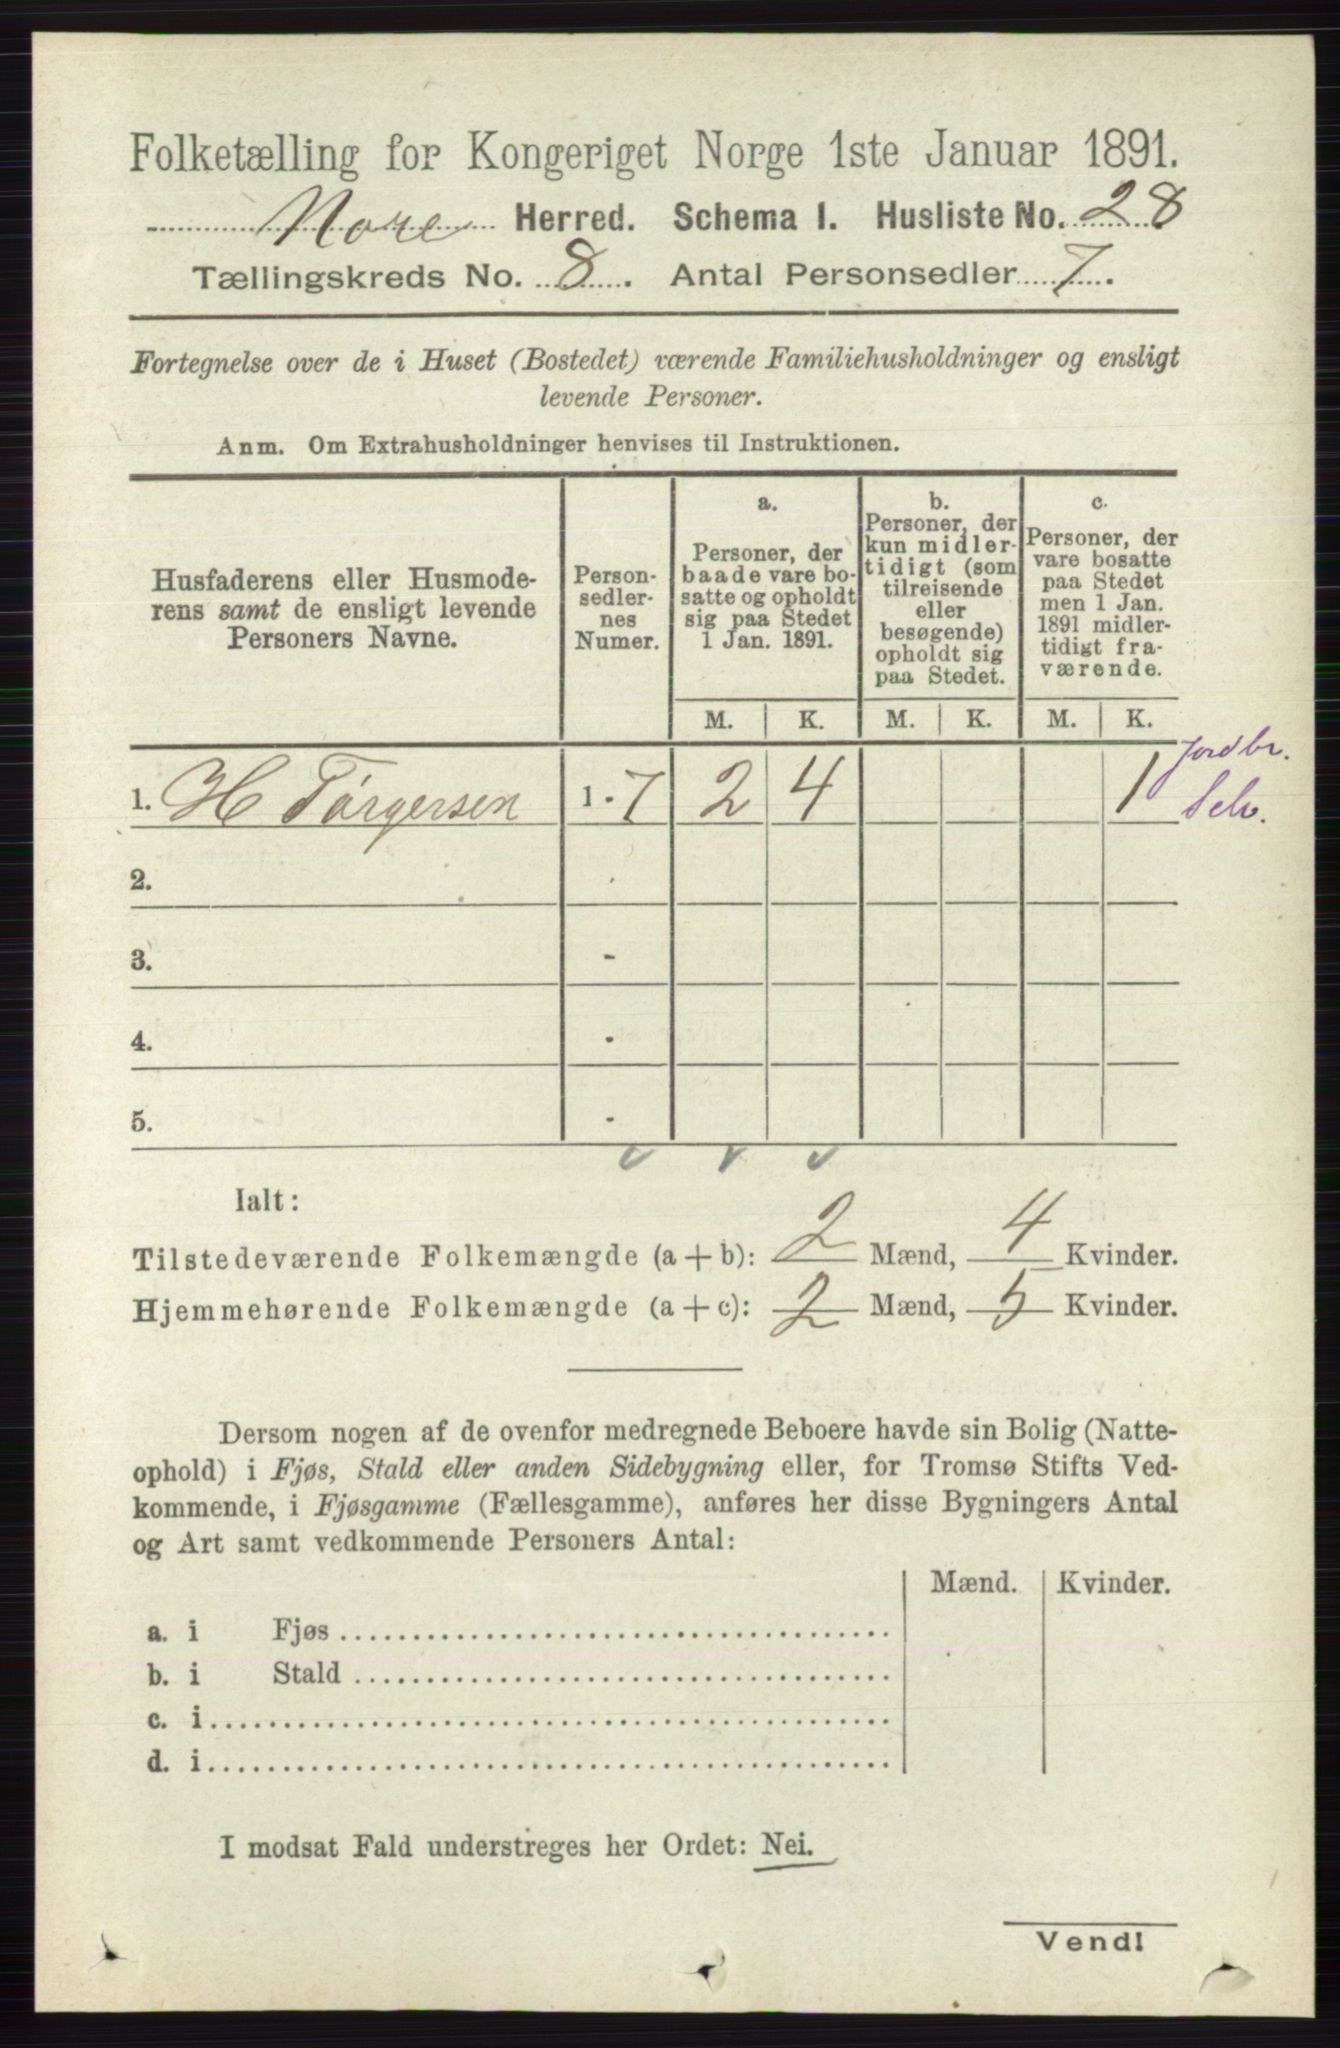 Folketælling for Kongeriget Norge 1ste Januar 1891.
Nore Herred. Schema I. Husliste No. 28
Tællingskreds No. 8. Antal Personsedler 7.
Fortegnelse over de i Huset (Bostedet) værende Familiehusholdninger og ensligt
levende Personer.
Anm. Om Extrahusholdninger henvises til Instruktionen.
Husfaderens eller Husmode-
rens samt de ensligt levende
Personers Navne.
Person-
sedler-
nes
Numer.
a.
Personer, der
baade vare bo-
satte og opholdt
sig paa Stedet
1 Jan. 1891.
b.
Personer, der
kun midler-
tidigt (som
tilreisende
eller
besøgende)
opholdt sig
paa Stedet.
c.
Personer, der
vare bosatte
paa Stedet
men 1 Jan.
1891 midler-
tidigt fra-
værende.
M. K. M. K. M. K.
Jordbr.
1. H Törgersen 1-7 2 4 1 Selv.
2.
3. -
4. -
5. -
Ialt:
Tilstedeværende Folkemængde (a+b): 2 Mænd, 4 Kvinder.
Hjemmehørende Folkemængde (a+c): 2 Mænd, 5 Kvinder.
Dersom nogen af de ovenfor medregnede Beboere havde sin Bolig (Natte-
ophold) i Fjøs, Stald eller anden Sidebygning eller, for Tromsø Stifts Ved-
kommende, i Fjøsgamme (Fællesgamme), anføres her disse Bygningers Antal
og Art samt vedkommende Personers Antal:
Mænd. Kvinder.
a. i Fjøs
b. i Stald
c. i
d. i
I modsat Fald understreges her Ordet: Nei.
Vend!